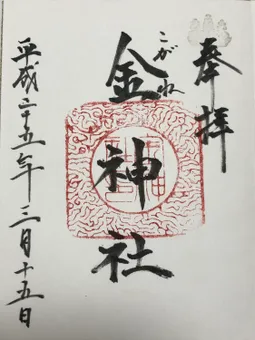 奉拝
こがね
金神社
平成二十五年三月十五日